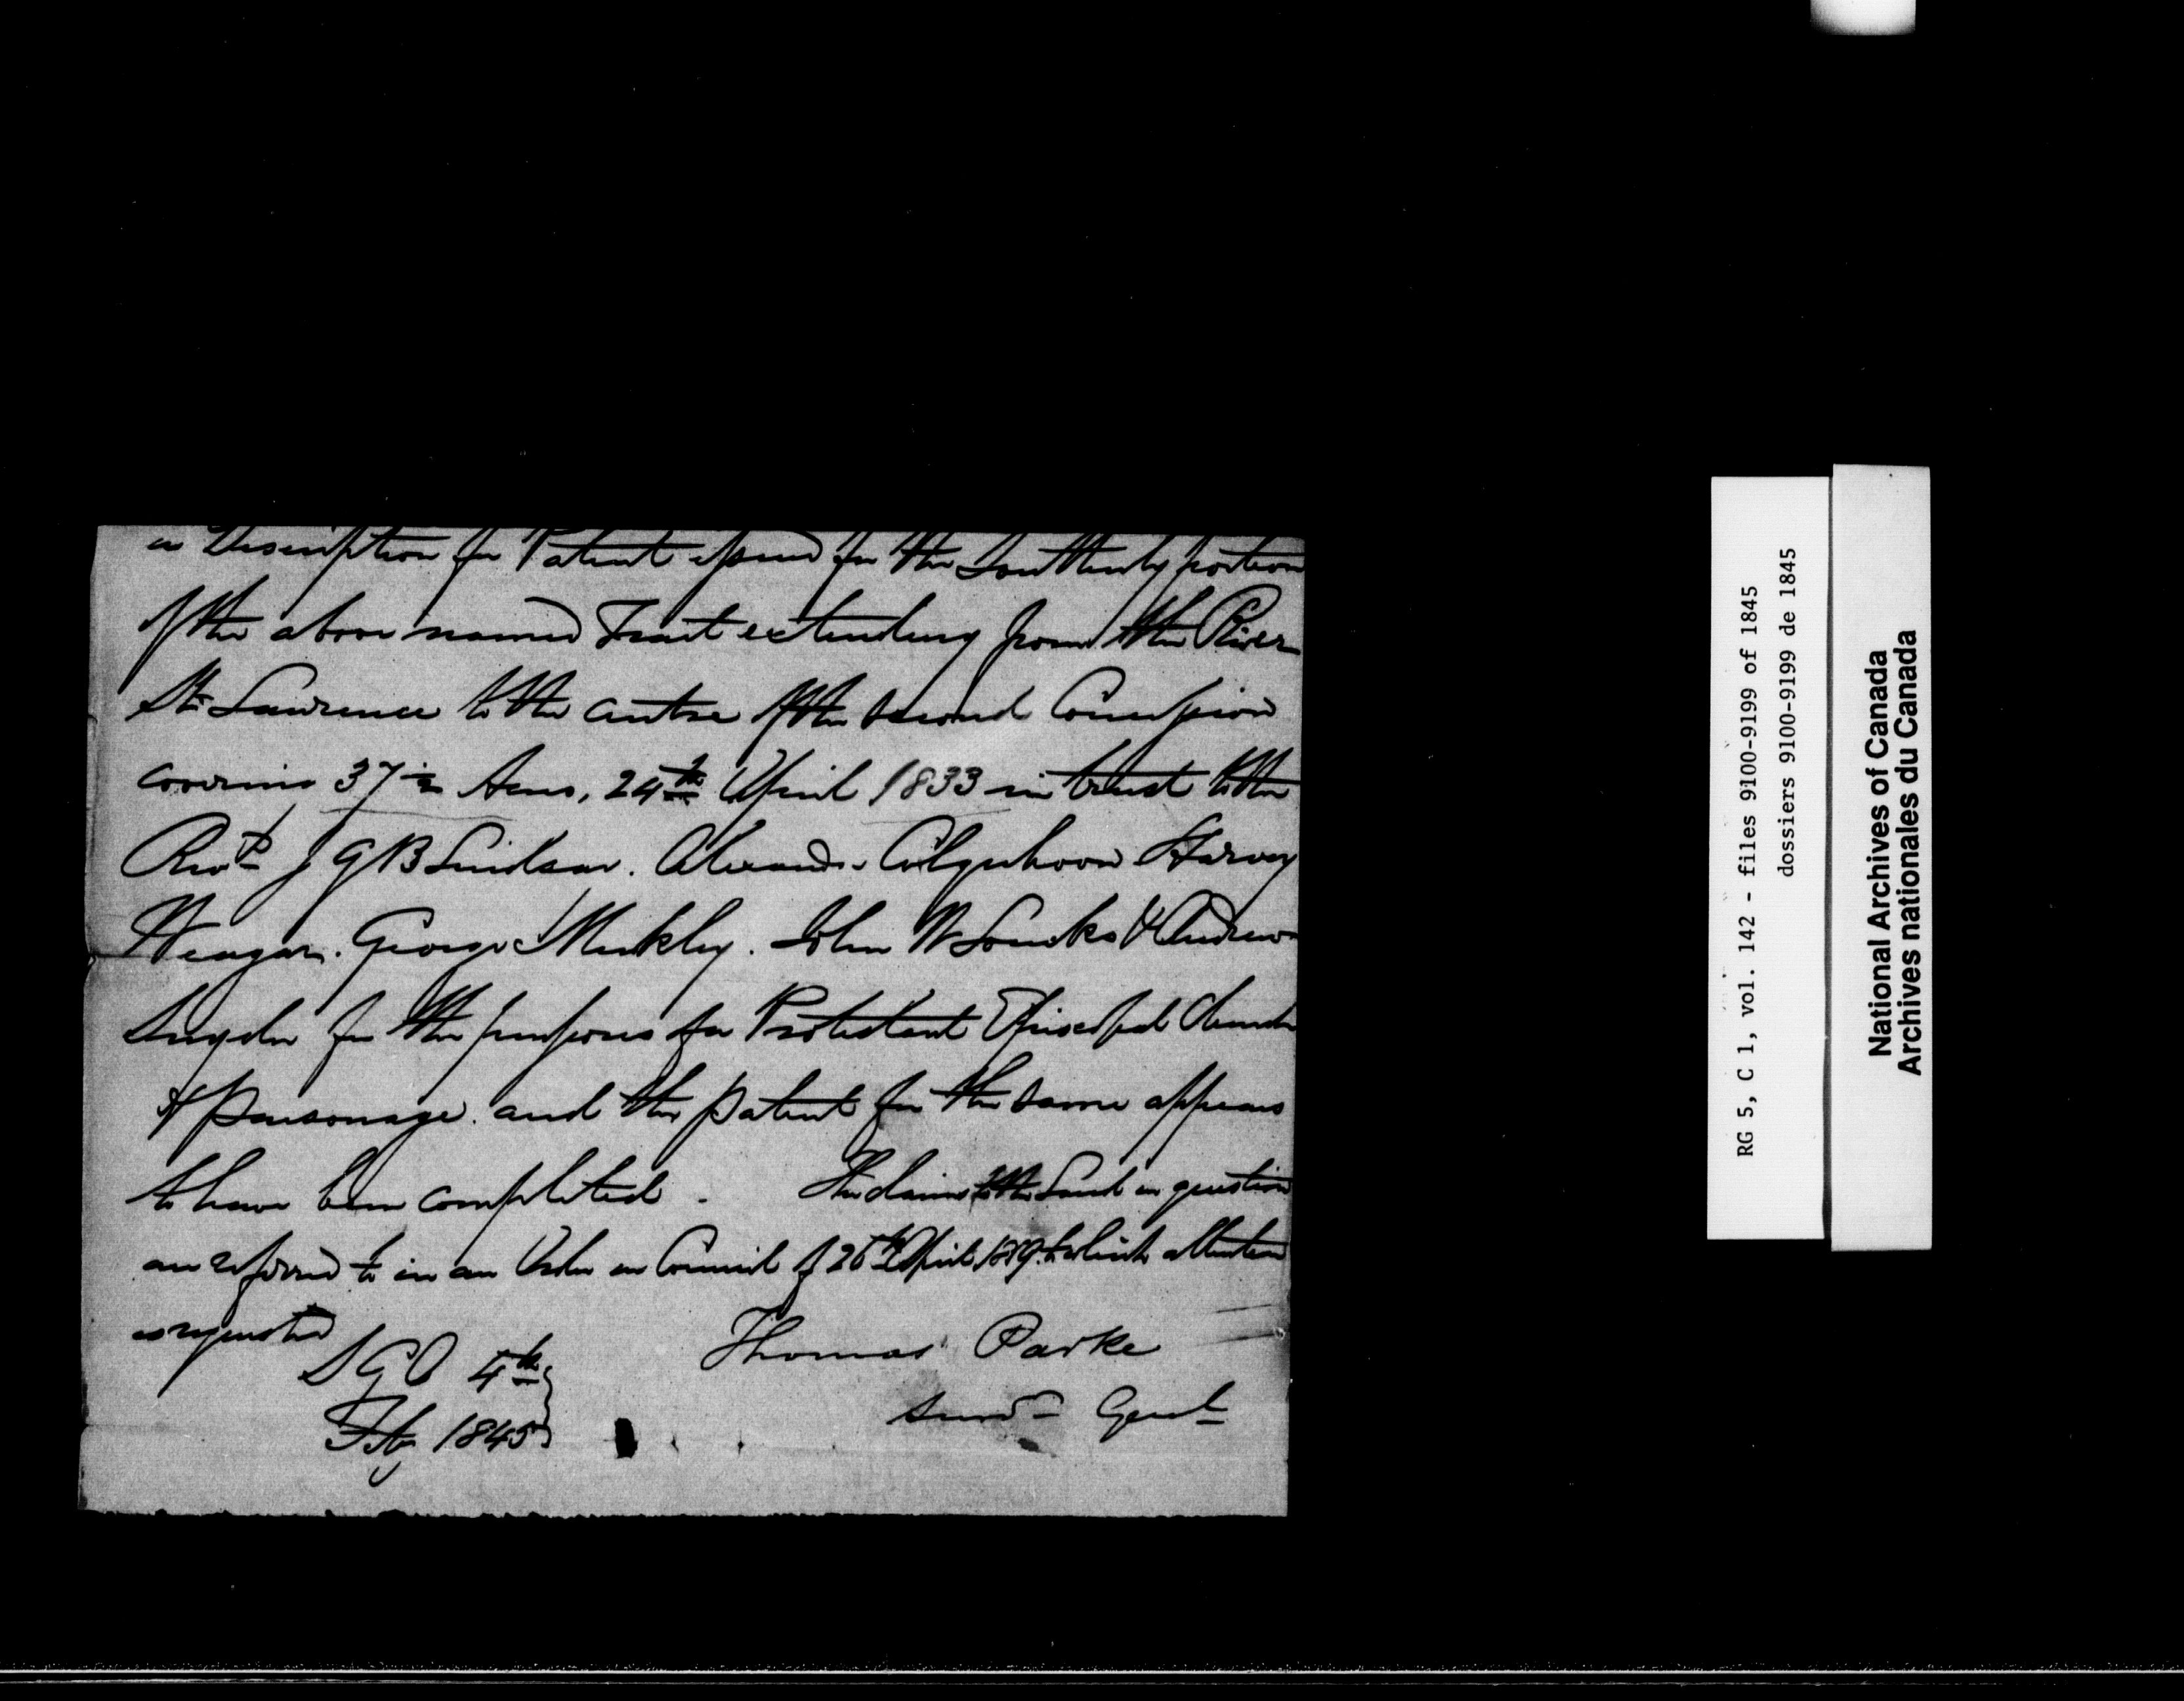 a Description for Patent issued for the Southerly portion
of the above named Tract extending from the River
St. Lawrence to the centre of the second Concession
covering 37½ Acres, 24th April 1833 in trust to the
Revd J G B Lindsay. Alexander Colquhoon Harvey
George Merkley. John W Loucks & Andrew
Snyder for the purposes of a Protestant Episcopal Church
& Parsonage. and the patent for the same appears
to have been completed. The claims to the Land in question
are referred to in an Order in Council of April to which attention
is requested
S G O 4th
Feby 1845
Thomas Parke
Survr Genl
RG 5, C 1, vol. 142 - files 9100-9199 of 1845
dossiers 9100-9199 de 1845
National Archives of Canada
Archives nationales du Canada